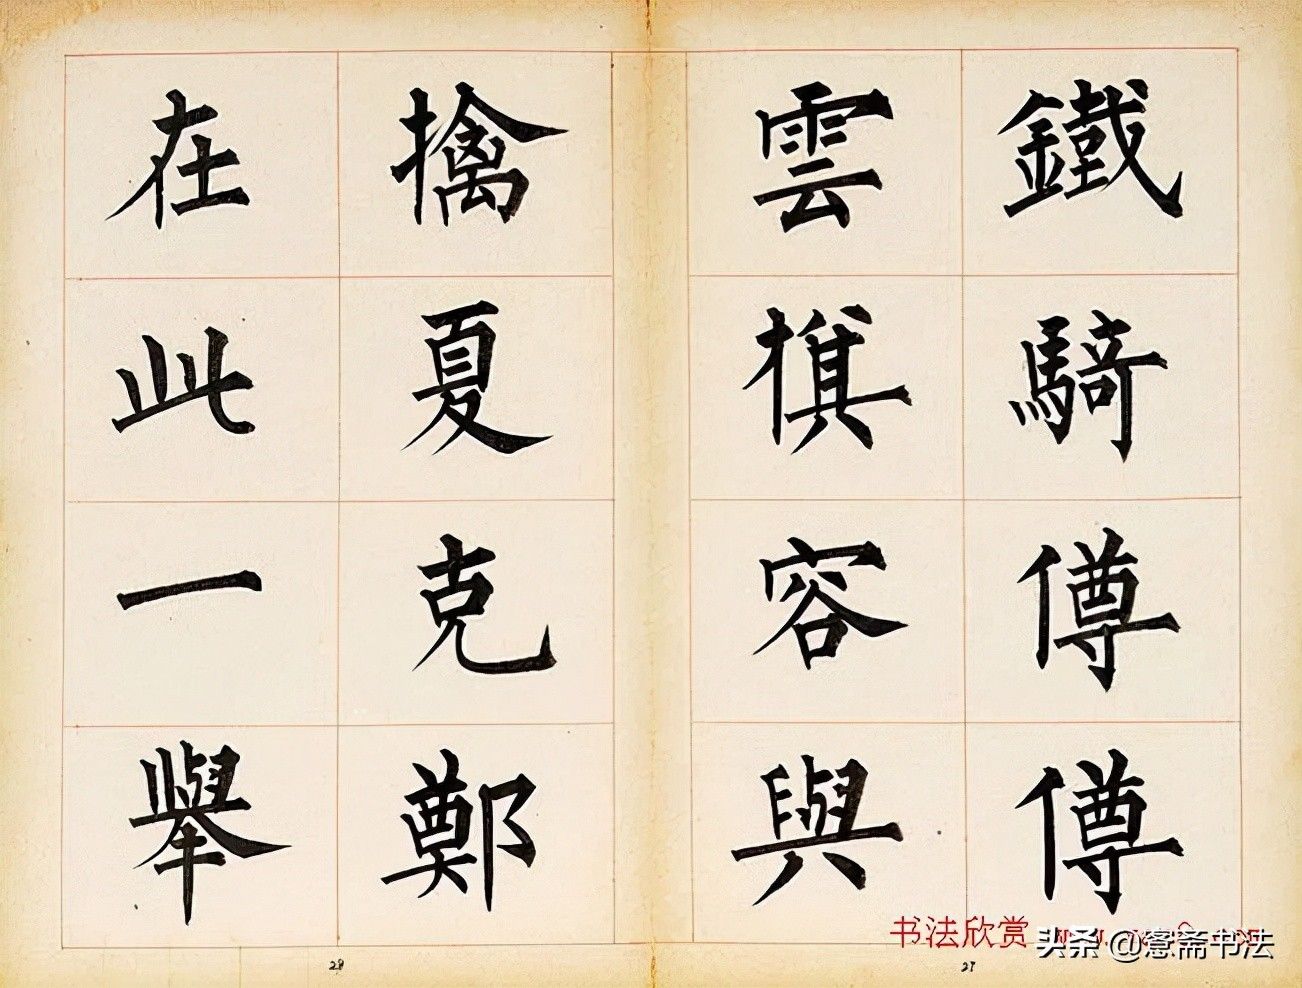 鐵騎僔僔
雲旗容與
擒夏克鄭
在此一舉
28
27
书法欣赏
头条 @愙斋书法